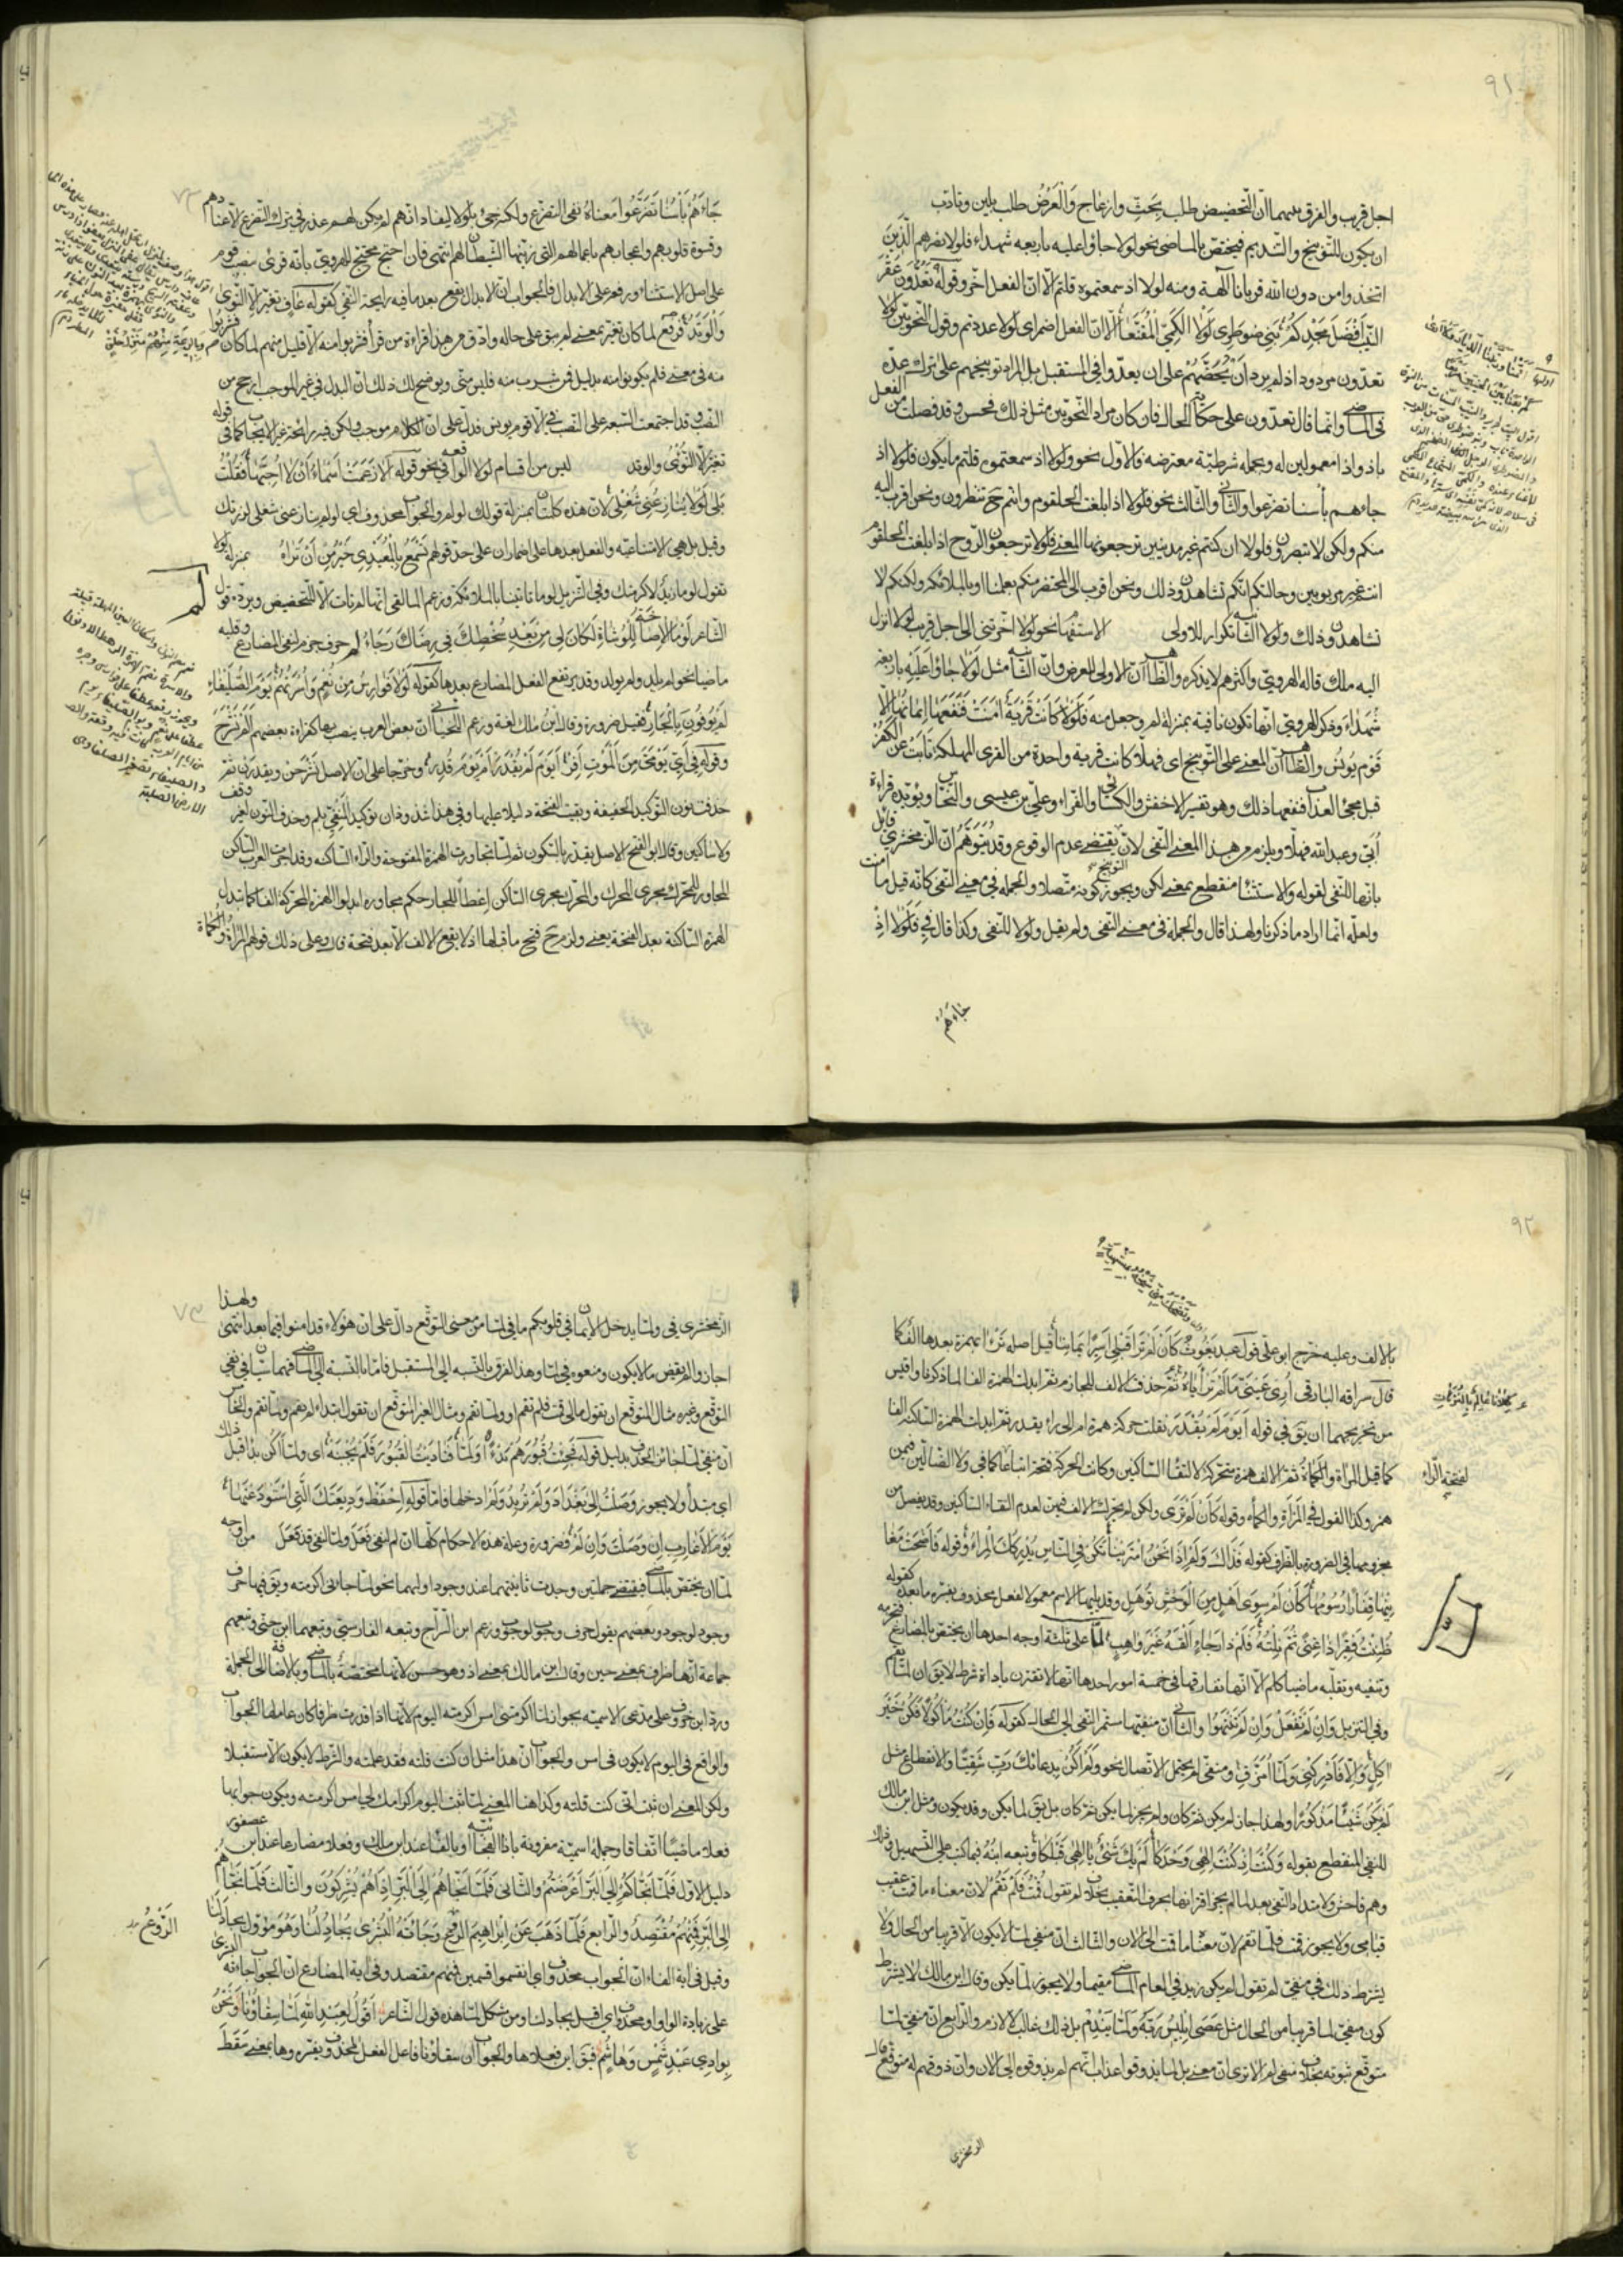 ٩١
اجل قريب والفرق بينهما ان التحضيض طلب بحث وازعاج والعرض طلب بلين وتادب
ان يكون للتوبيخ والتنديم فيختص بالماضى نحو لولا جاؤا عليه باربعه شهداء فلولا نصرهم الذين
اتخذوا من دون الله قربانا آلهة ومنه لولا اذ سمعتموه قلتم الا ان الفعل اخر وقوله تعدون عقر
النيب افضل مجدكم بنى ضوطرى لولا الكمى المقنعا الا ان الفعل اضمر اى لولا عددتم وقول النحويين لولا
تعدون مردود اذ لم يرد ان يحضهم على ان يعدوا فى المستقبل بل المراد توبيخهم على ترك عده
فى الماضى وانما قال تعدون على حكاية الحال فان كان مراد النحويين مثل ذلك فحسن وقد فصلت من الفعل
باذ واذا معمولين له وبجمله شرطية معترضه فالاول نحو ولولا اذ سمعتموه قلتم ما يكون فلولا اذ
جاءهم بأسنا تضرعوا والثانى والثالث نحو فلولا اذا بلغت الحلقوم وانتم حينئذ تنظرون ونحن اقرب اليه
منكم ولكن لا تبصرون فلولا ان كنتم غير مدينين ترجعونها المعنى فلولا ترجعون الروح اذا بلغت الحلقوم
ان كنتم غير مربوبين وحالتكم انكم تشاهدون ذلك ونحن اقرب الى المحتضر منكم بعلمنا او بالملائكة ولكنكم لا
تشاهدون ذلك ولولا الثانية تكرار للاولى الاستفهام نحو لولا اخرتنى الى اجل قريب لولا انزل
اليه ملك قاله الهروى واكثرهم لا يذكره والظاهر ان الاولى للعرض وان الثانية مثل لولا جاؤا عليه باربعة
شهداء وذكر الهروى انها تكون نافية بمنزلة لم وجعل منه فلولا كانت قرية امنت فنفعها ايمانها الا
قوم يونس والظاهر ان المعنى على التوبيخ اى فهلا كانت قرية واحدة من القرى المهلكة تابت عن الكفر
قبل مجئ العذاب فنفعها ذلك وهو تفسير الاخفش والكسائى والفراء وعلى بن عيسى والنحاس ويؤيده قراءة
ابى وعبد الله فهلا ويلزم من هذا المعنى النفى لان التوبيخ يقتضى عدم الوقوع وقد يتوهم ان الزمخشرى قائل
بانها للنفى لقوله والاستثناء منقطع بمعنى لكن ويجوز كونه متصلا والجملة فى معنى النفى كانه قيل ما امنت
ولعله انما اراد ما ذكرنا ولهذا قال والجملة فى معنى النفى ولم يقل ولولا للنفى وكذا قال فى فلولا اذ
جاءهم
جاءهم بأسنا تضرعوا معناه نفى التضرع ولكنه جئ بلولا ليفاد انهم لم يكن لهم عذر فى ترك التضرع الا عنادهم
وقسوة قلوبهم واعجابهم باعمالهم التى زينها الشيطان لهم انتهى فان احتج محتج للهروى بانه قرئ بنصب قوم
على اصل الاستثناء ورفعه على الابدال فالجواب ان الابدال يقع بعد ما فيه رايحة النفى كقوله عاف تغير الا النؤى
والوتد فرفع لما كان تغير بمعنى لم يبق على حاله وادق من هذا قراءة من قرأ فشربوا منه الا قليل منهم لما كان فشربوا
منه فى معنى فلم يكونوا منه بدليل فمن شرب منه فليس منى ويوضح لك ذلك ان البدل فى غير الموجب ارجح من
النصب وقد اجتمعت السبعة على النصب فى الا قوم يونس فدل على ان الكلام موجب ولكن فيه رايحة غير الايجاب كما فى قوله
تغير الا النؤى والوتد ليس من اقسام لولا الواقعة فى نحو قوله الا زعمت اسماء ان لا احبها فقلت
بلى لولا ينازعنى شغلى لان هذه كلمتان بمنزلة قولك لو لم والجواب محذوف اى لو لم ينازعنى شغلى لزرتك
وقيل بل هى الامتناعية والفعل بعدها على اضمار ان على حد قولهم تسمع بالمعيدى خير من ان تراه بمنزلة لولا
تقول لوما زيد لاكرمتك وفى التنزيل لوما تاتينا بالملائكة وزعم المالقى انها لم تات الا للتحضيض ويرده قول
الشاعر لوما الاصاخة للوشاة لكان لى من بعد سخطك فى رضاك رجاء لم حرف جزم لنفى المضارع وقلبه
ماضيا نحو لم يلد ولم يولد وقد يرتفع الفعل المضارع بعدها كقوله لولا فوارس من نعم واسرتهم يوم الصليفاء
لم يوفون بالجار فقيل ضرورة وقال ابن مالك لغة وزعم اللحيانى ان بعض العرب ينصب بها كقراءة بعضهم الم نشرح
وقوله فى اى يومى من الموت افر ايوم لم يقدر ام يوم قدر وخرجا على ان الاصل نشرحن ويقدرن ثم
حذفت نون التوكيد الخفيفة وبقيت الفتحة دليلا عليها وفى هذا شذوذان توكيد المنفى بلم وحذف النون لغير وقف
ولا ساكنين وقال ابو الفتح الاصل يقدر بالسكون ثم لما تجاورت الهمزة المفتوحة والراء الساكنة وقد اجرت العرب الساكن
المجاور للمحرك مجرى المحرك والمحرك مجرى الساكن اعطاء للجار حكم مجاوره ابدلوا الهمزة المحركة الفا كما تبدل
الهمزة الساكنة بعد الفتحة يعنى ولزم حينئذ فتح ما قبلها اذ لا يقع الالف الا بعد فتحة قال وعلى ذلك قولهم المراة والكماة
٩٢
بالالف وعليه خرج ابو على قول عبد يغوث كان لم ترا قبلى اسيرا يمانيا قيل اصله ترءا بهمزة بعدها الف كما
قال سراقه البارقى ارى عينى ما لم ترأياه ثم حذف الالف للجازم ثم ابدلت الهمزة الفا لما ذكرنا واقيس
من تخريجهما ان يق فى قوله ايوم لم يقدر نقلت حركة همزة ام الى راء يقدر ثم ابدلت الهمزة الساكنة الفا
كما قيل المراة والكماة ثم الالف همزة متحركة لالتقاء الساكنين وكانت الحركة فتحة اتباعا كما فى ولا الضالين فيمن
لفتحة الراء
همز وكذا القول فى المراة والكماه وقوله كان لم ترى ولكن لم يحرك الالف فيهن لعدم التقاء الساكنين وقد يفصل من
مجزومها فى الضرورة بالظرف كقوله فذاك ولم اذا نحن امترينا تكن فى الناس يدركك المراء وقوله فاضحت مغا
نيها قفارا رسومها كان لم سوى اهل من الوحش توهل وقد يليها الاسم معمولا لفعل محذوف يفسره ما بعده كقوله
ظننت فقيرا ذا غنى ثم نلته فلم ذا رجاء القه غير واهب لما على ثلثة اوجه احدها ان يختص بالمضارع فتجزمه
وتنفيه وتقلبه ماضيا كلم الا انها تفارقها فى خمسة امور احدها انها لا تقترن باداة شرط لا يق ان لما تقم
وفى التنزيل وان لم تفعل وان لم تنتهوا والثانى ان منفيها مستمر النفى الى الحال كقوله فان كنت ماكولا فكن خير
اكل والا فادركنى ولما امزق ومنفى لم يحتمل الاتصال نحو ولم اكن بدعائك رب شقيا والانقطاع مثل
لم يكن شيئا مذكورا ولهذا جاز لم يكن ثم كان ولم يجز لما يكن ثم كان بل يق لما يكن وقد يكون ومثل ابن مالك
للنفى المنقطع بقوله وكنت اذ كنت الهى وحدكا لم يك شئ يا الهى قبلكا وتبعه ابنه فيما كتب على التسهيل وذلك
وهم فاحش ولامتداد النفى بعد لما لم يجز اقترانها بحرف التعقيب بخلاف لم تقول قمت فلم تقم لان معناه ما قمت عقيب
قيامى ولا يجوز قمت فلما تقم لان معناه ما قمت الى الان والثالث ان منفى لما لا يكون الا قريبا من الحال ولا
يشترط ذلك فى منفى لم تقول لم يكن زيد فى العام الماضى مقيما ولا يجوز لما يكن وقال ابن مالك لا يشترط
كون منفى لما قريبا من الحال مثل عصى ابليس ربه ولما يندم بل ذلك غالب لا لازم والرابع ان منفى لما
متوقع ثبوته بخلاف منفى لم الا ترى ان معنى بل لما يذوقوا عذاب انهم لم يذوقوه الى الان وان ذوقهم له متوقع قال
الزمخشرى
الزمخشرى فى ولما يدخل الايمان فى قلوبكم ما فى لما من معنى التوقع دال على ان هؤلاء قد امنوا فيما بعد انتهى ولهذا
اجازوا لم يقض ما لا يكون ومنعوه فى لما وهذا الفرق بالنسبه الى المستقبل فاما بالنسبة الى الماضى فهما سيان فى نفى
التوقع وغيره مثال المتوقع ان يقول مالى قمت فلم تقم او ولما تقم ومثال الغير المتوقع ان تقول ابتداء لم تقم ولما تقم والخامس
ان منفى لما جائز الحذف بدليل قوله فجئت قبورهم بدءا ولما فناديت القبور فلم يجبنه اى ولما اكن بدأ قبل ذلك
اى مبتدأ ولا يجوز وصلت الى بغداد ولم تريد ولم ادخلها فاما قوله احفظ وديعتك التى استودعتها
يوم الاعارب ان وصلت وان لم فضرورة وعلة هذه الاحكام كلها ان لم لنفى فعل ولما لنفى قد فعل من اوجه
لما ان يختص بالماضى فيقتضى جملتين وجدت ثانيتهما عند وجود اوليهما نحو لما جاءنى اكرمته ويق فيها حرف
وجود لوجود وبعضهم يقول حرف وجوب لوجوب وزعم ابن السراج وتبعه الفارسى وتبعهما ابن جنى وتبعهم
جماعة انها ظرف بمعنى حين وقال ابن مالك بمعنى اذ وهو حسن لانها مختصة بالماضى وبالاضافة الى الجملة
ورد ابن خروف على مدعى الاسمية بجواز لما اكرمتنى امس اكرمته اليوم لانها اذا قدرت ظرفا كان عاملها الجواب
والواقع فى اليوم لا يكون فى امس والجواب ان هذا مثل ان كنت قلته فقد علمته والشرط لا يكون الا مستقبلا
ولكن المعنى ان ثبت انى كنت قلته وكذا هنا المعنى لما ثبت اليوم اكرامك لى امس اكرمته ويكون جوابها
فعلا ماضيا اتفاقا وجملة اسمية مقرونة باذا الفجائية او بالفاء عند ابن مالك وفعلا مضارعا عند ابن عصفور
دليل الاول فلما نجاكم الى البر اعرضتم والثانى فلما نجاهم الى البر اذا هم يشركون والثالث فلما نجاهم
الى البر فمنهم مقتصد والرابع فلما ذهب عن ابراهيم الروع وجاءته البشرى يجادلنا وهو مؤول بجادلنا
الروع
وقيل فى اية الفاء ان الجواب محذوف اى انقسموا قسمين فمنهم مقتصد وفى اية المضارع ان الجواب جاءته البشرى
على زيادة الواو او محذوف اى اقبل يجادلنا ومن مشكل لما هذه قول الشاعر اقول لعبد الله لما سقاؤنا ونحن
بوادى عبد شمس وهاشم فيق اين فعلاها والجواب ان سقاؤنا فاعل الفعل المحذوف يفسره وها بمعنى سقط